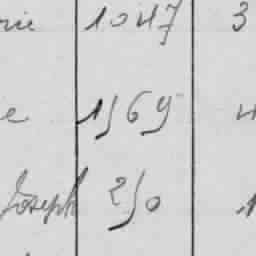 rie 1047 3
e 1569 4
Joseph 250 1